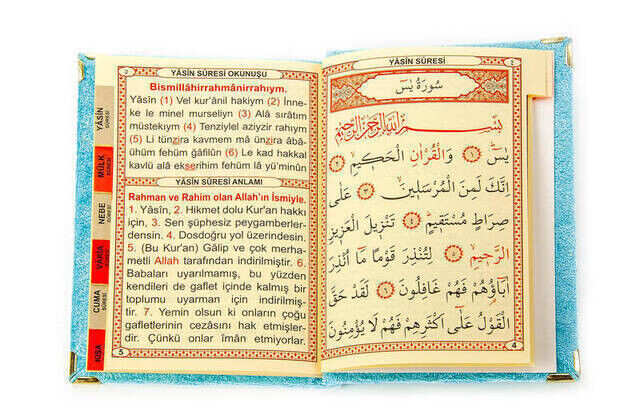 ٥
YÂSİN SÛRESİ OKUNUŞU
Bismillâhirrahmânirrahıym.
Yâsîn (1) Vel kur'ânil hakiym (2) İnne-
ke le minel murseliyn (3) Alâ sıratım
müstekıym (4) Tenziylel aziyzir rahıym
(5) Li tünzira kavmem mâ ünzira âbâ-
ühüm fehüm ğâfilûn (6) Le kad hakkal
kavlü alâ ekserihim fehüm lâ yü'minûn
YÂSİN SÛRESİ ANLAMI
Rahman ve Rahim olan Allah'ın İsmiyle.
1. Yâsîn, 2. Hikmet dolu Kur'an hakkı
için, 3. Sen şüphesiz peygamberler-
densin. 4. Dosdoğru yol üzerindesin.
5. (Bu Kur'an) Gâlip ve çok merha-
metli Allah tarafından indirilmiştir. 6.
Babaları uyarılmamış, bu yüzden
kendileri de gaflet içinde kalmış bir
toplumu uyarman için indirilmiş-
tir. 7. Yemin olsun ki onların çoğu
gafletlerinin cezâsını hak etmişler-
dir. Çünkü onlar îmân etmiyorlar.
5
YÂSİN
SÛRESİ
MÜLK
SÛRESİ
NEBE
SÛRESİ
VAKIA
SÛRESİ
CUMA
SÛRESİ
KISA
YÂSİN SÛRESİ
٤
سُورَةُ يٰسٓ
بِسْمِ اللّٰهِ الرَّحْمٰنِ الرَّحِيمِ
يٰسٓ ﴿١﴾ وَالْقُرْاٰنِ الْحَكِيمِ ﴿٢﴾
اِنَّكَ لَمِنَ الْمُرْسَلِينَ ﴿٣﴾ عَلٰى
صِرَاطٍ مُسْتَقِيمٍ ﴿٤﴾ تَنْزِيلَ الْعَزِيزِ
الرَّحِيمِ ﴿٥﴾ لِتُنْذِرَ قَوْمًا مَٓا اُنْذِرَ
اٰبَٓاؤُ۬هُمْ فَهُمْ غَافِلُونَ ﴿٦﴾ لَقَدْ حَقَّ
الْقَوْلُ عَلٰٓى اَكْثَرِهِمْ فَهُمْ لَا يُؤْمِنُونَ
4